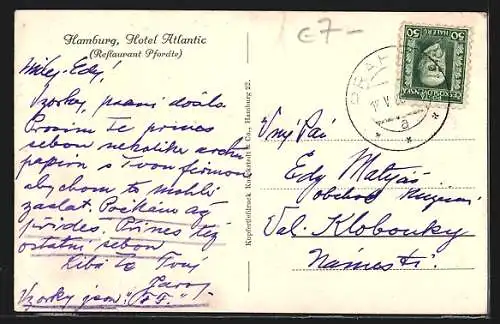 Hamburg, Hotel Atlantic
(Restaurant Pfordte)
€7-
Milý Edy!
Vzorky, psaní došlo.
Prosím Tě přines
sebou několik archů
papíru s Tvou firmou
abychom to mohli
zaslat. Počkám až
přijdeš. Přines též
ostatní sebou
Líbá Tě Tvůj
Jarry
Vzorky jsou "FF"!
Kupfertiefdruck Hamburg 22.
PRAHA
V
a
50 50
ČESKOSLOVENSKÁ
HALÉŘŮ
Edy Matyáš
obchod
Val. Klobouky
Náměstí